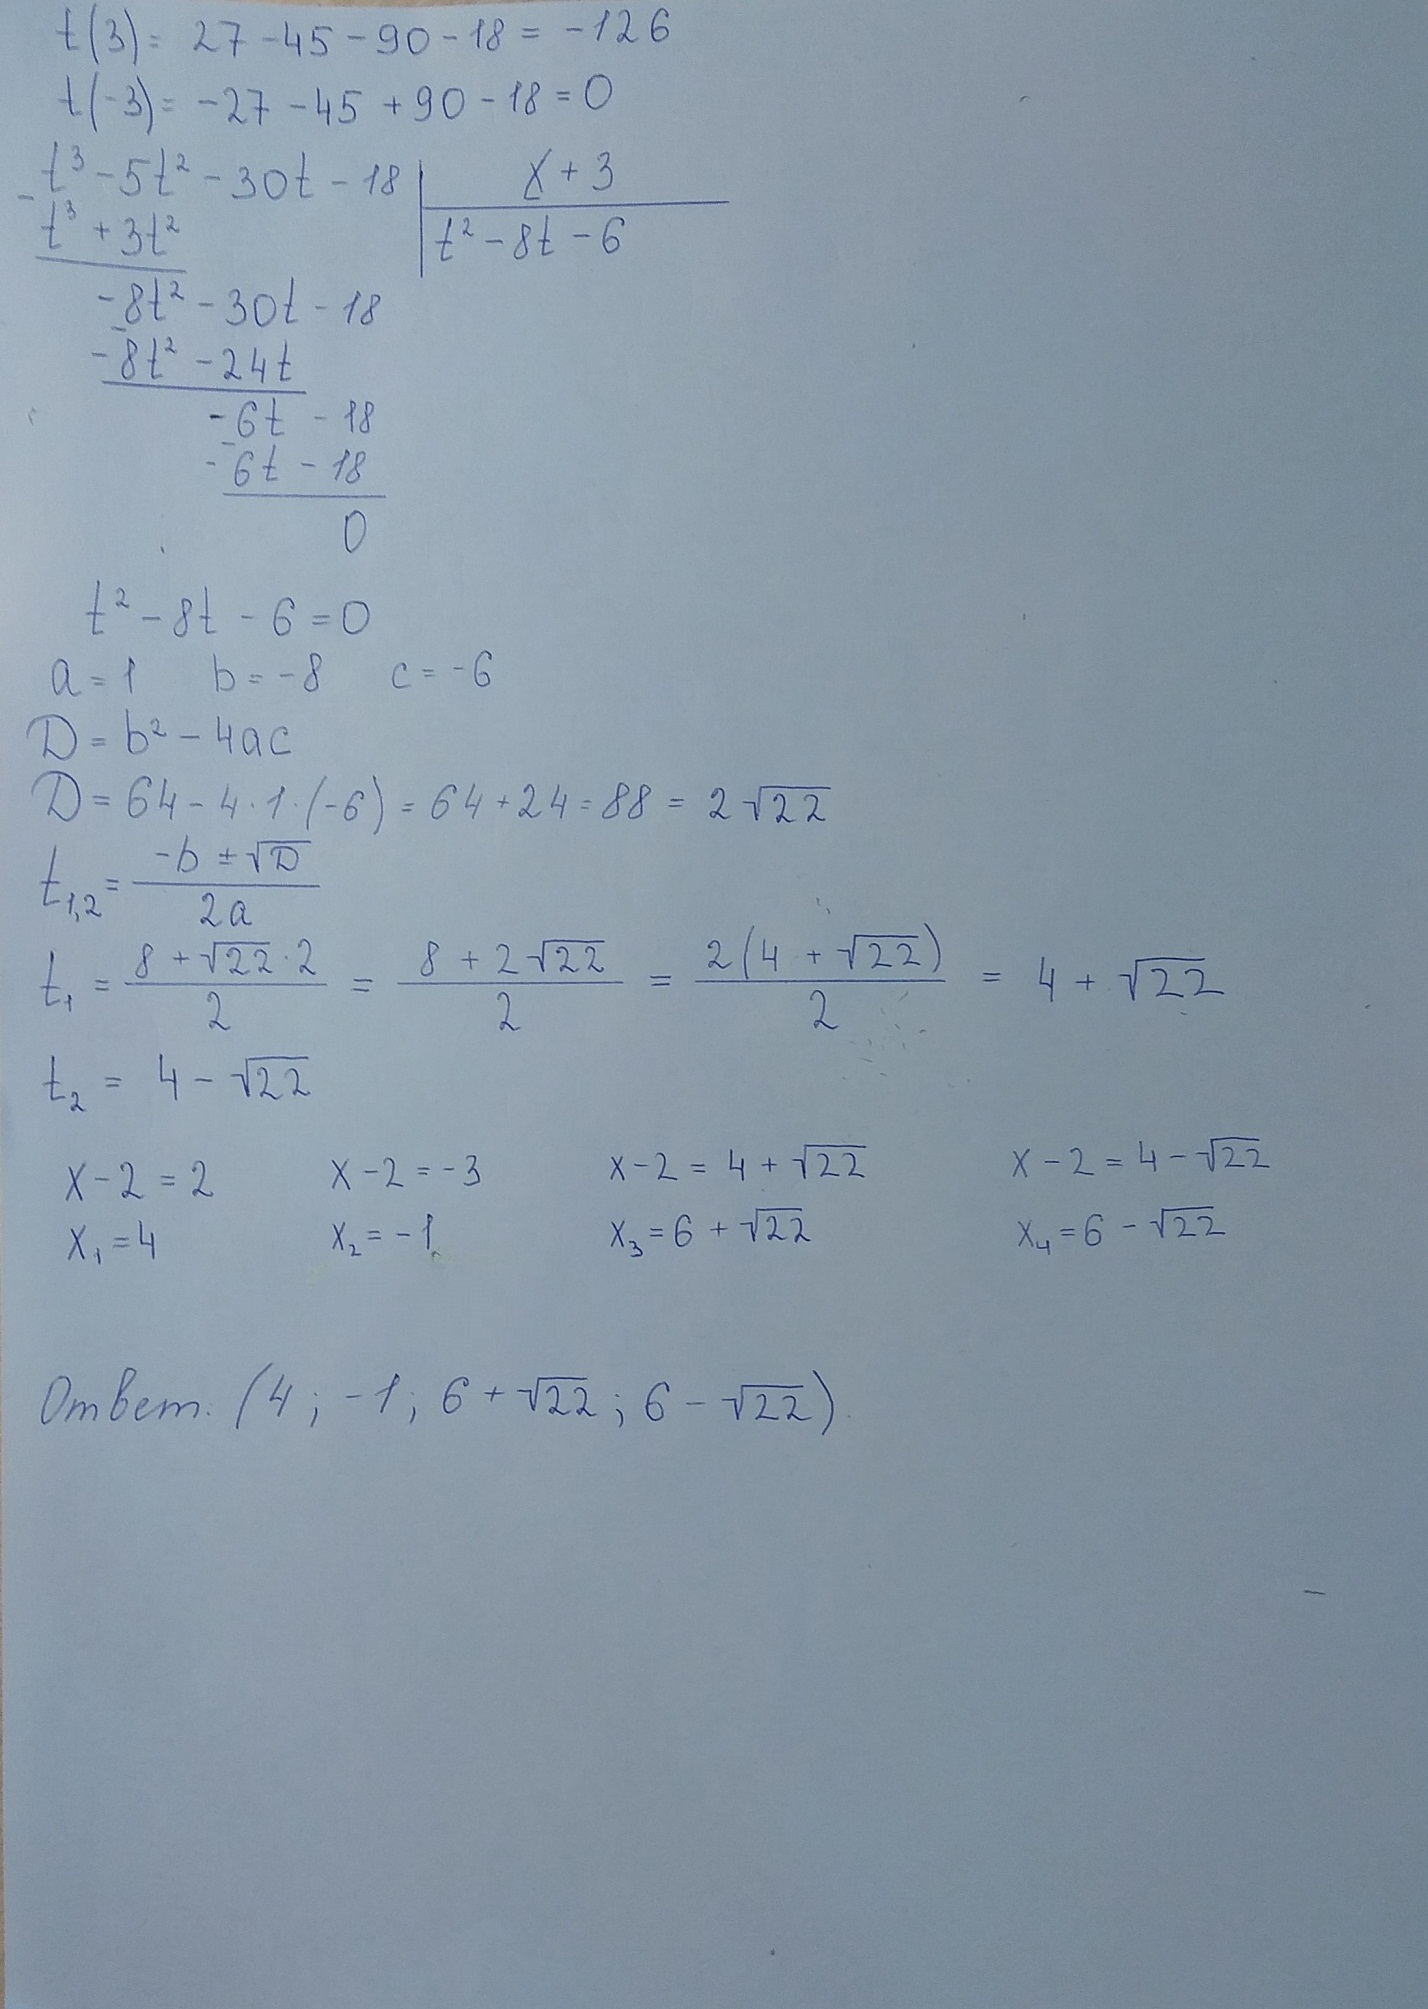 t(3) = 27 - 45 - 90 - 18 = -126
t(-3) = -27 - 45 + 90 - 18 = 0
t³ - 5t² - 30t - 18 | x + 3
t³ + 3t² | t² - 8t - 6
-8t² - 30t - 18
-8t² - 24t
-6t - 18
-6t - 18
0
t² - 8t - 6 = 0
a = 1 b = -8 c = -6
D = b² - 4ac
D = 64 - 4·1·(-6) = 64 + 24 = 88 = 2√22
t₁,₂ = (-b ± √D) / 2a
t₁ = (8 + √22·2) / 2 = (8 + 2√22) / 2 = 2(4 + √22) / 2 = 4 + √22
t₂ = 4 - √22
x - 2 = 2 x - 2 = -3 x - 2 = 4 + √22 x - 2 = 4 - √22
x₁ = 4 x₂ = -1 x₃ = 6 + √22 x₄ = 6 - √22
Ответ. (4; -1; 6 + √22; 6 - √22)